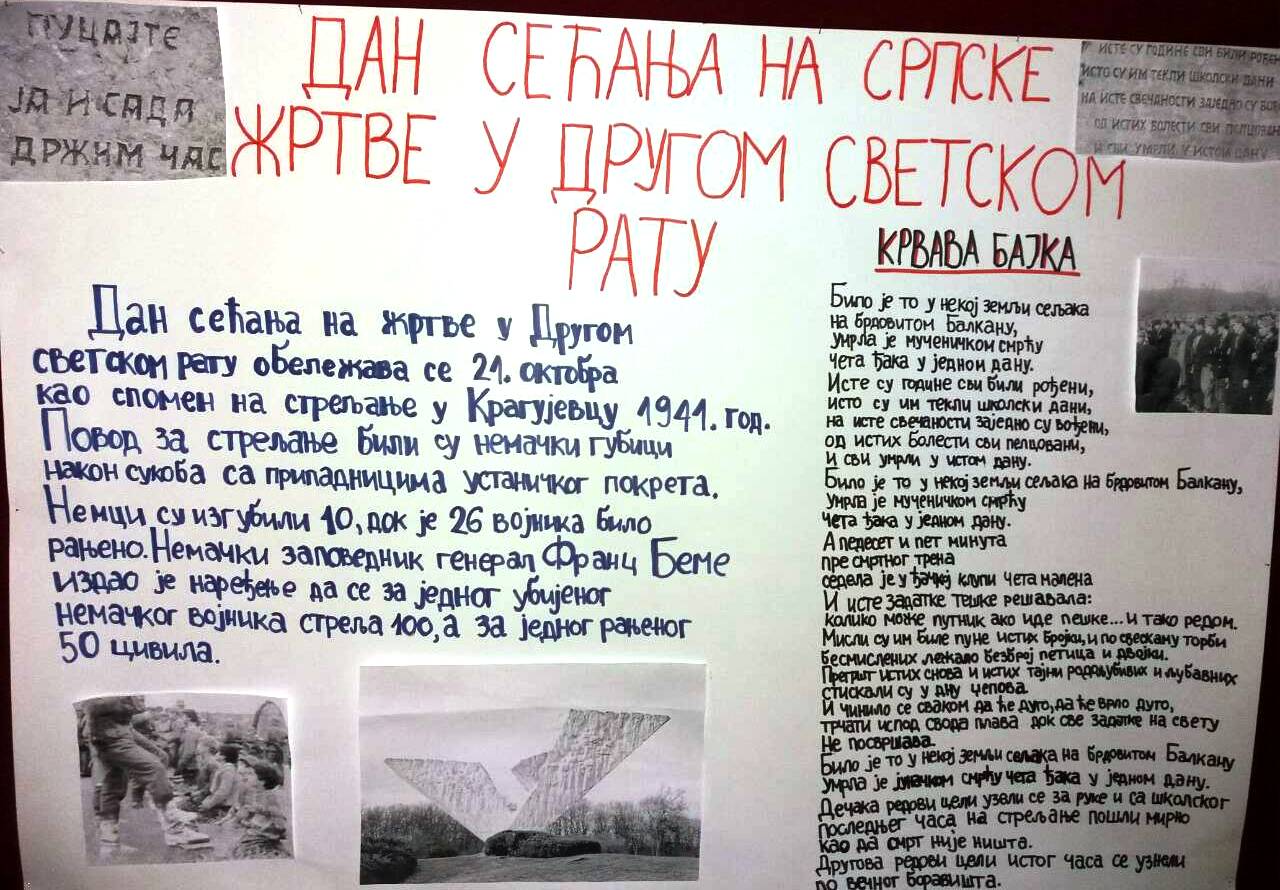 ПУЦАЈТЕ
ЈА И САДА
ДРЖИМ ЧАС
ДАН СЕЋАЊА НА СРПСКЕ
ЖРТВЕ У ДРУГОМ СВЕТСКОМ
РАТУ
ИСТЕ СУ ГОДИНЕ СВИ БИЛИ РОЂЕН
ИСТО СУ ИМ ТЕКЛИ ШКОЛСКИ ДАНИ
НА ИСТЕ СВЕЧАНОСТИ ЗАЈЕДНО СУ ВО
ОД ИСТИХ БОЛЕСТИ СВИ ПЕЛЦОВАНИ
И СВИ УМРЛИ У ИСТОМ ДАНУ
Дан сећања на жртве у Другом
светском рату обележава се 21. октобра
као спомен на стрељање у Крагујевцу 1941. год.
Повод за стрељање били су немачки губици
након сукоба са припадницима устаничког покрета.
Немци су изгубили 10, док је 26 војника било
рањено. Немачки заповедник генерал Франц Беме
издао је наређење да се за једног убијеног
немачког војника стреља 100, а за једног рањеног
50 цивила.
КРВАВА БАЈКА
Било је то у некој земљи сељака
на брдовитом Балкану,
умрла је мученичком смрћу
чета ђака у једном дану.
Исте су године сви били рођени,
исто су им текли школски дани,
на исте свечаности заједно су вођени,
од истих болести сви пелцовани,
и сви умрли у истом дану.
Било је то у некој земљи сељака на брдовитом Балкану,
умрла је мученичком смрћу
чета ђака у једном дану.
А педесет и пет минута
пре смртног трена
седела је у ђачкој клупи чета малена
И исте задатке тешке решавала:
колико може путник ако иде пешке... и тако редом.
Мисли су им биле пуне истих бројки, и по свескаму торби
бесмислених лежало безброј петица и двојки.
Прегршт истих снова и истих тајни родољубивих и љубавних
стискали су у дну џепова.
И чинило се сваком да ће дуго, да ће врло дуго,
трчати испод свода плава док све задатке на свету
Не посвршава.
Било је то у некој земљи сељака на брдовитом Балкану
Умрла је јуначком смрћу чета ђака у једном дану.
Дечака редови цели узели се за руке и са школског
последњег часа на стрељање пошли мирно
као да смрт није ништа.
Другова редови цели истог часа се узнели
до вечног боравишта.